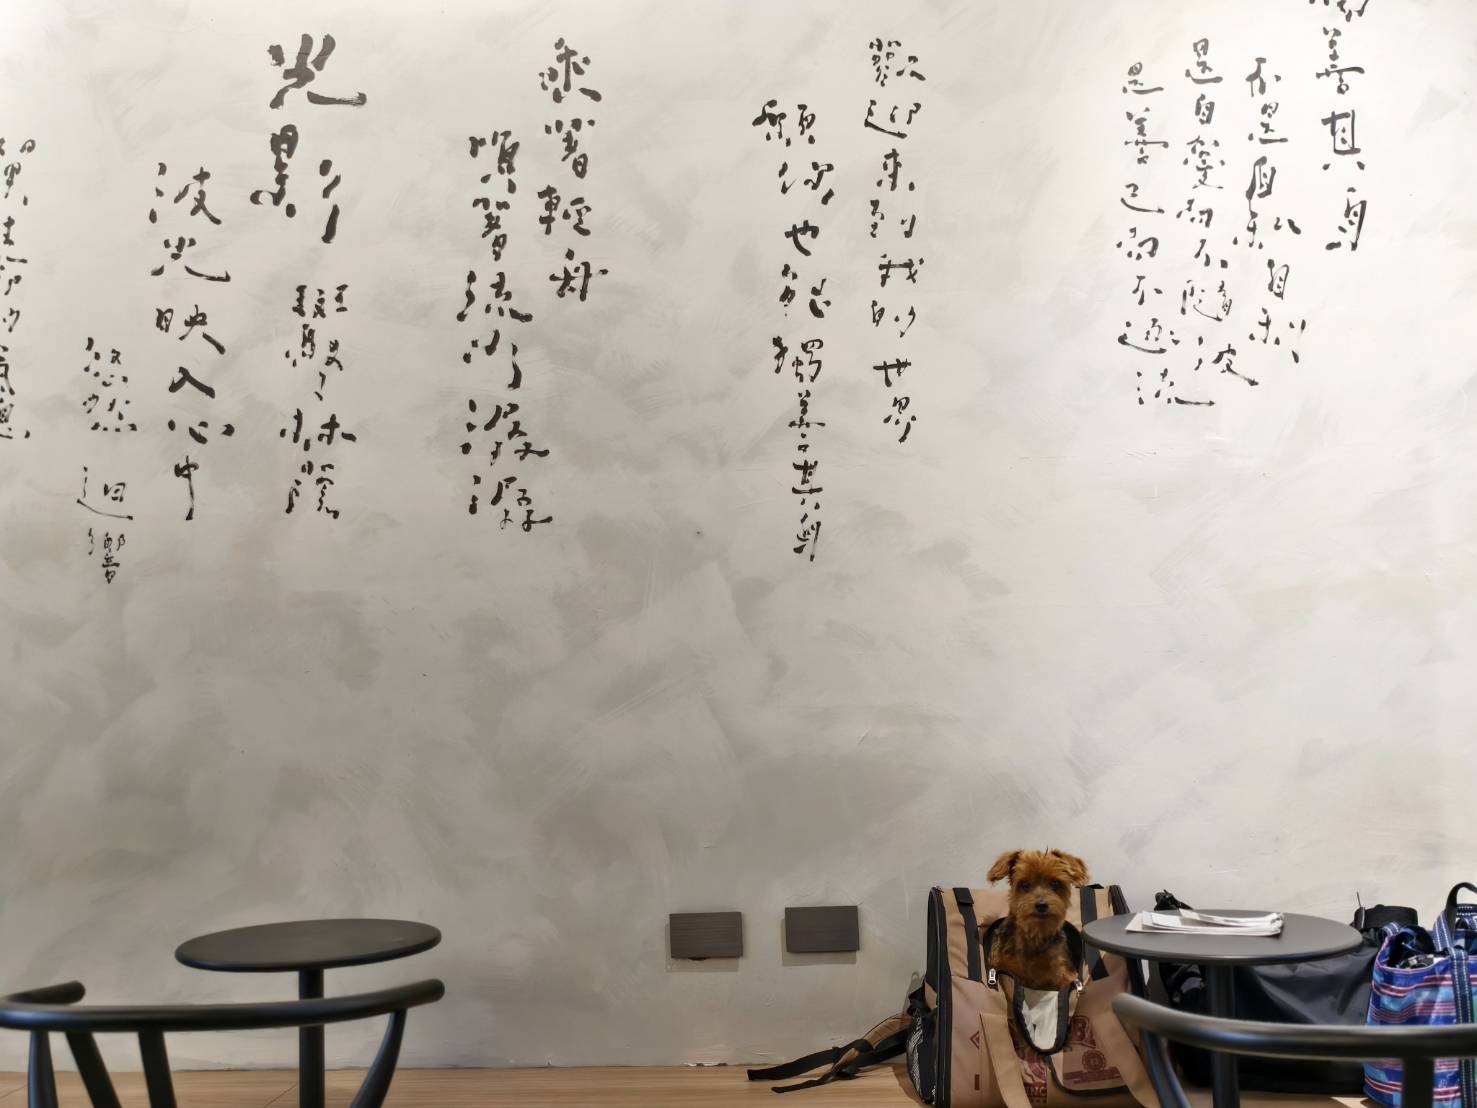 善其身
不是自私自利
是自愛而不隨波
是善己而不逐流
歡迎來到我的世界
願你也能獨善其身
乘著輕舟
順著流水潺潺
光影
斑駁了林蔭
波光映入心中
悠然 迴響